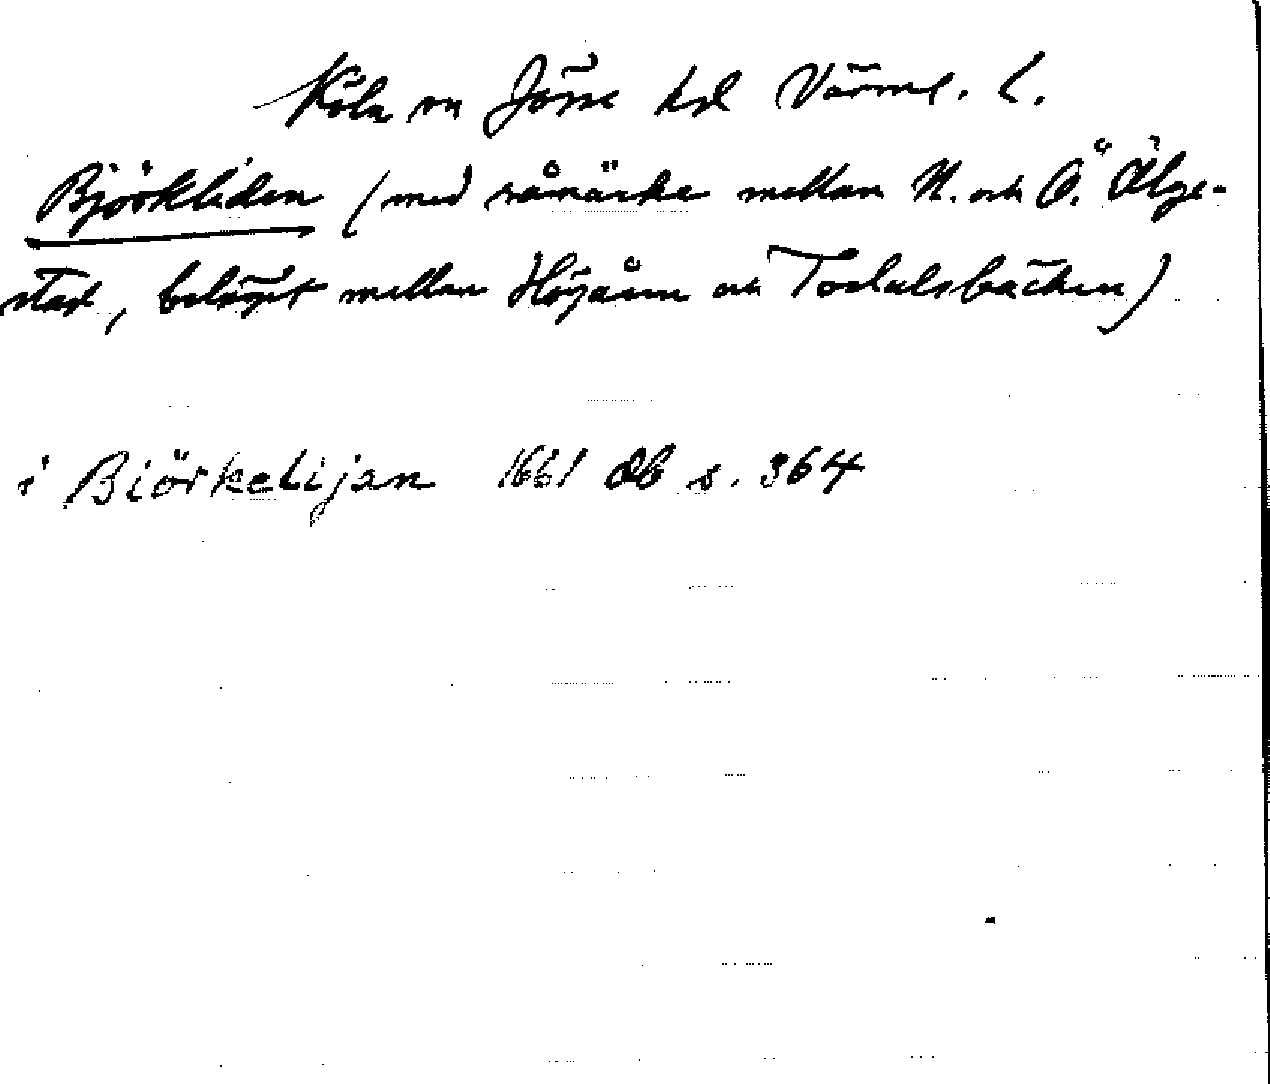 Köla sn Jösse hd Värml. l.
Björkliden (med råmärke mellan N. och Ö. Älge-
stad, beläget mellan Höjåsen och Tordalsbäcken)
i Biörkelijan 1661 db s. 364